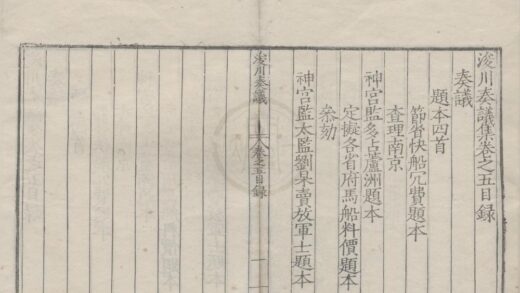 浚川奏議集卷之五目録
奏議
題本四首
節省快船冗費題本
查理南京
神宮監多占蘆洲題本
定擬各省府馬船料價題本
叅劾
神宮監太監劉杲賣放軍士題本
浚川奏議 卷之五目録 一